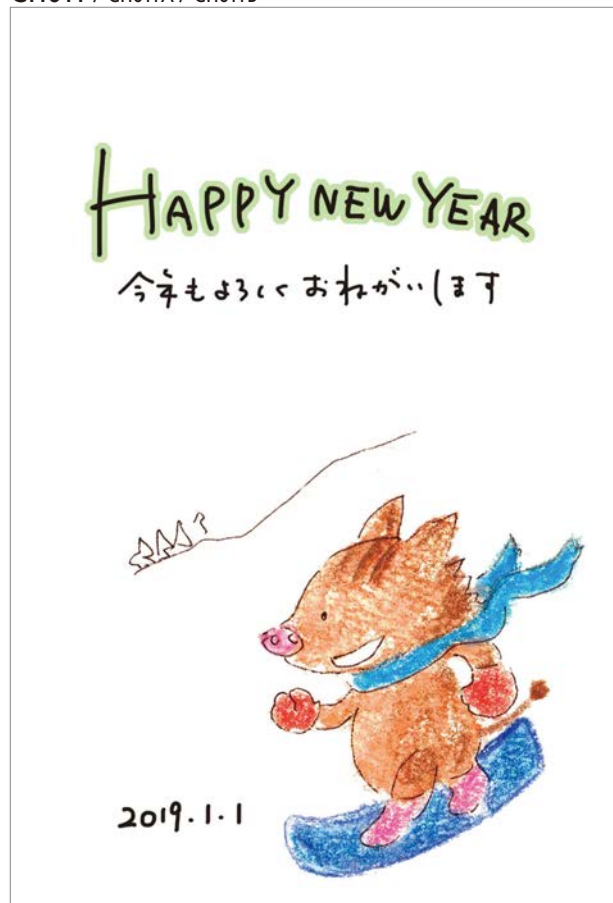 HAPPY NEW YEAR
今年もよろしくおねがいします
2019.1.1